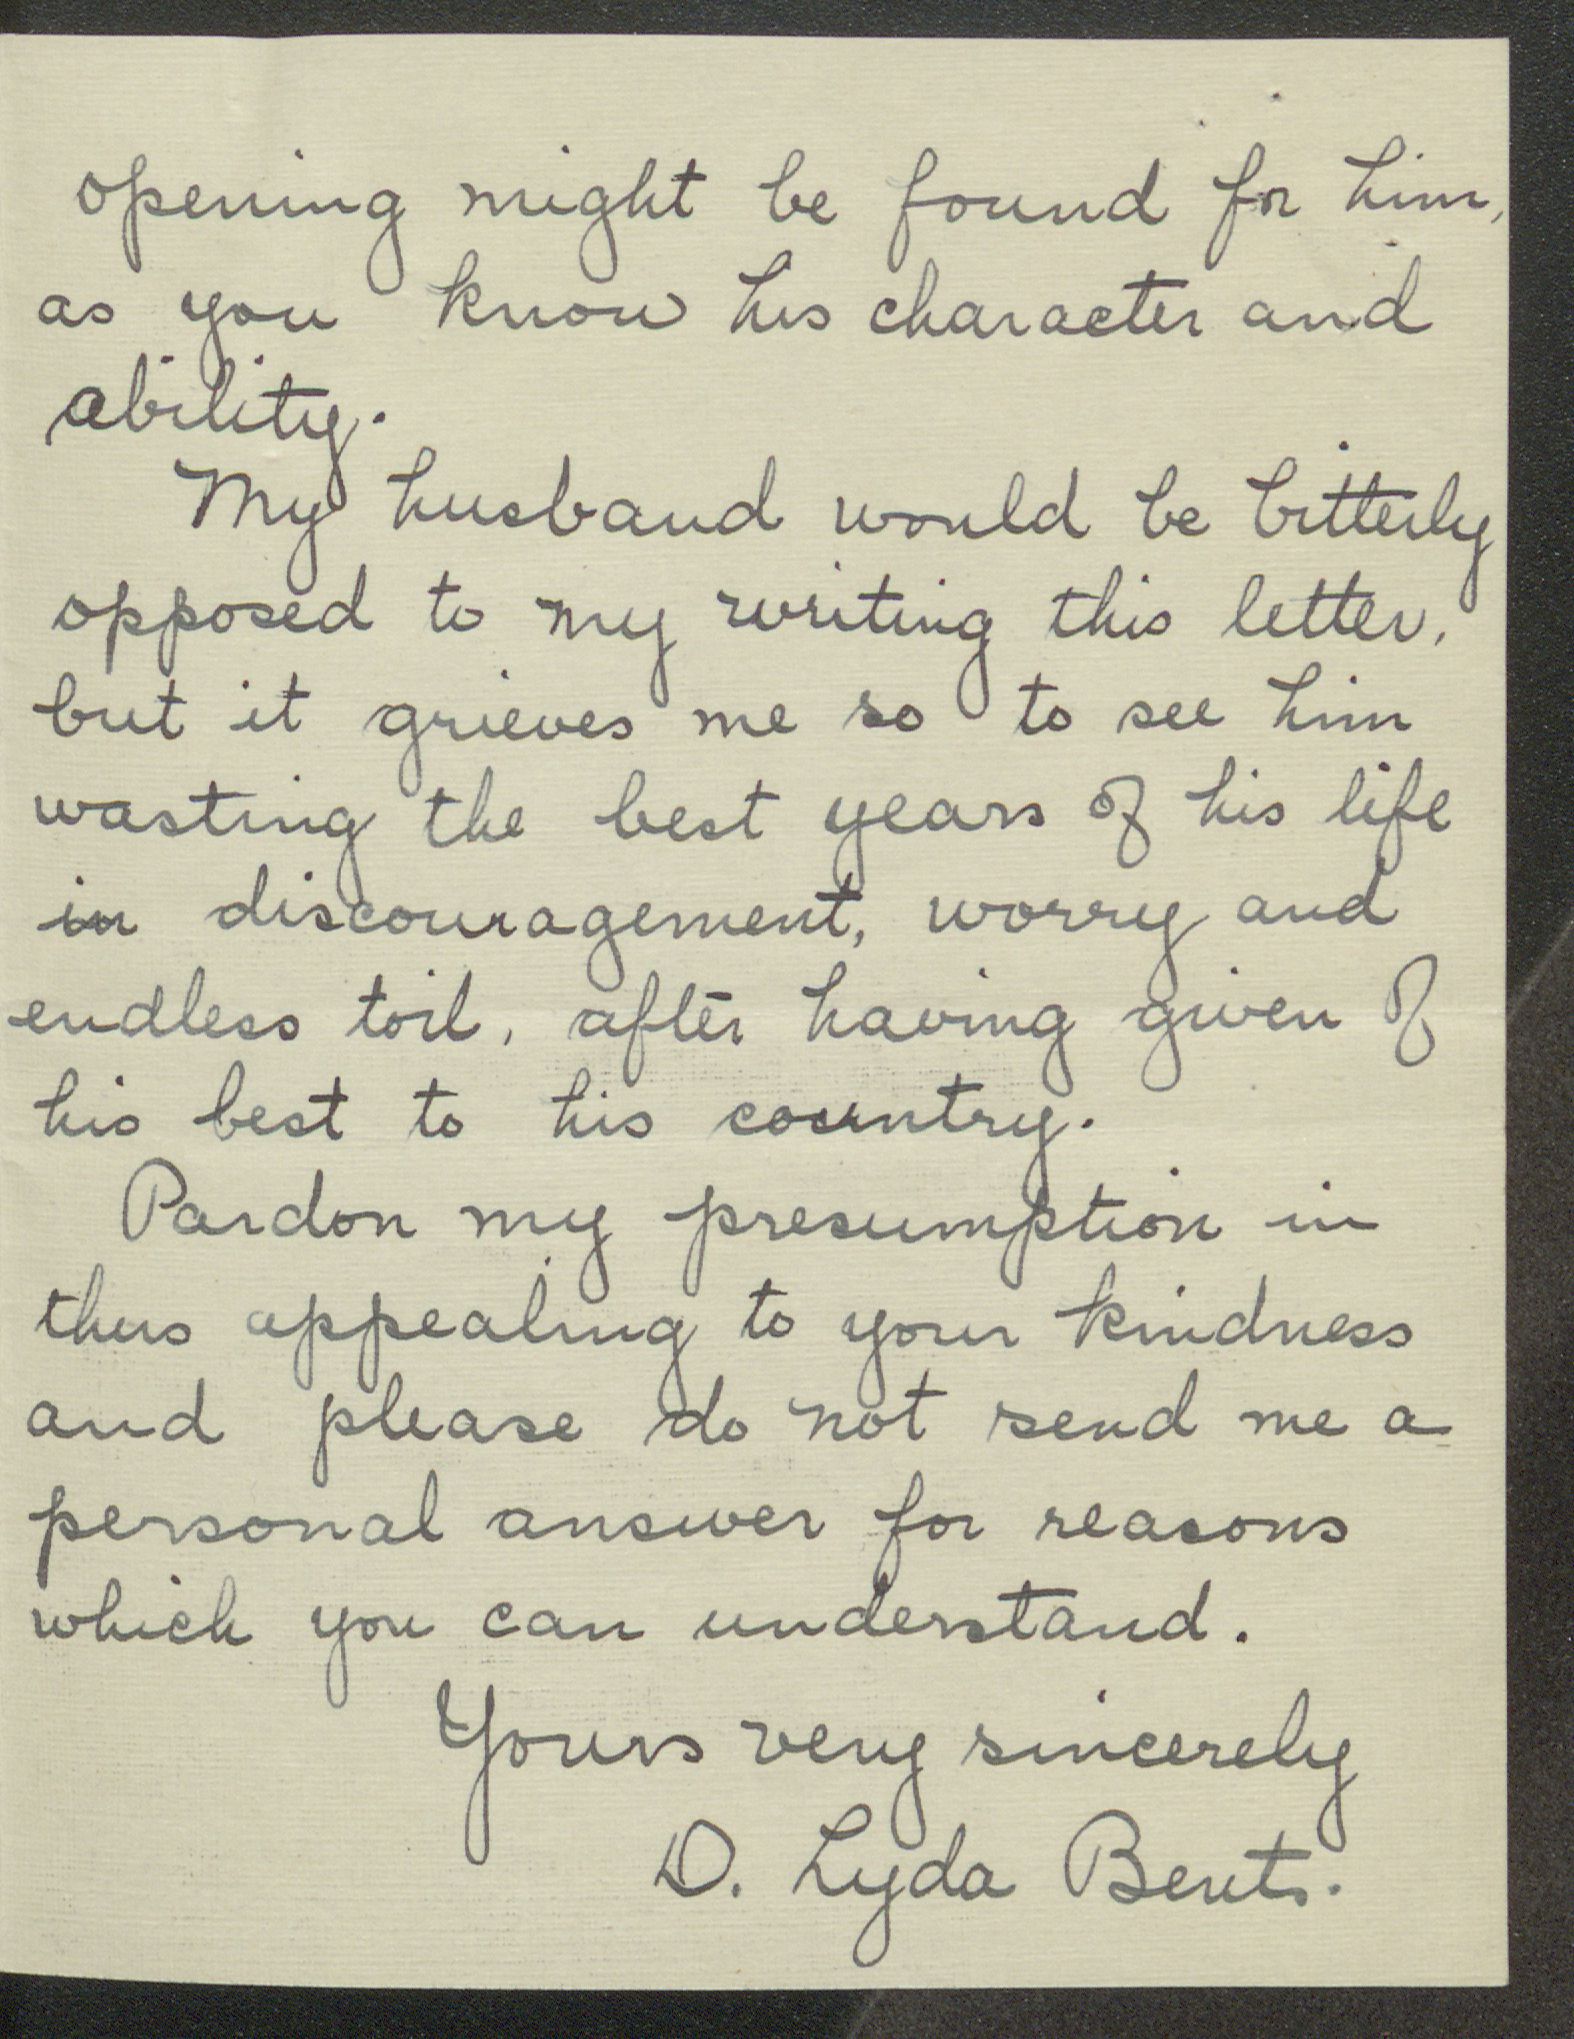 opening might be found for him,
as you know his character and
ability.
My husband would be bitterly
opposed to my writing this letter,
but it grieves me so to see him
wasting the best years of his life
in discouragement, worry and
endless toil, after having given of
his best to his country.
Pardon my presumption in
thus appealing to your kindness
and please do not send me a
personal answer for reasons
which you can understand.
Yours very sincerely
D. Lyda Bents.